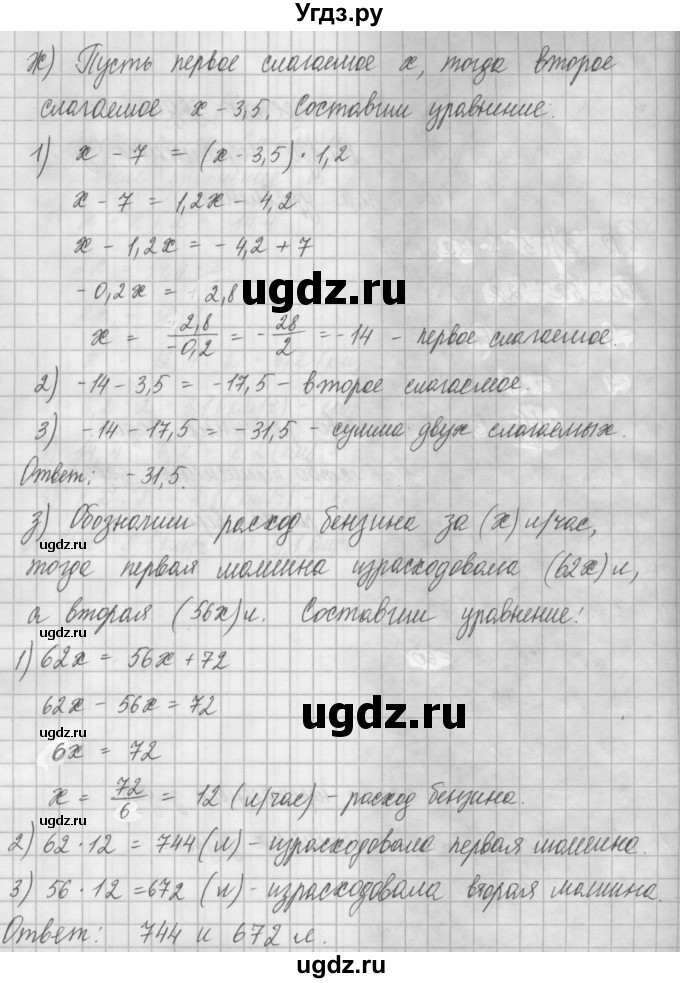 Угдз.ру
ж) Пусть первое слагаемое x, тогда второе
слагаемое x - 3,5. Составим уравнение:
1) x - 7 = (x - 3,5) · 1,2
x - 7 = 1,2x - 4,2
x - 1,2x = - 4,2 + 7
-0,2x = 2,8
ugdz.ru
x = 2,8/-0,2 = - 28/2 = -14 - первое слагаемое.
2) -14 - 3,5 = -17,5 - второе слагаемое.
3) -14 - 17,5 = -31,5 - сумма двух слагаемых.
Ответ: -31,5.
з) Обозначим расход бензина за (x) л/час,
ugdz.ru
тогда первая машина израсходовала (62x) л,
а вторая (56x) л. Составим уравнение:
ugdz.ru
1) 62x = 56x + 72
62x - 56x = 72
ugdz.ru
ugdz.ru
6x = 72
x = 72/6 = 12 (л/час) - расход бензина.
2) 62 · 12 = 744 (л) - израсходовала первая машина.
3) 56 · 12 = 672 (л) - израсходовала вторая машина.
Ответ: 744 и 672 л.
ugdz.ru